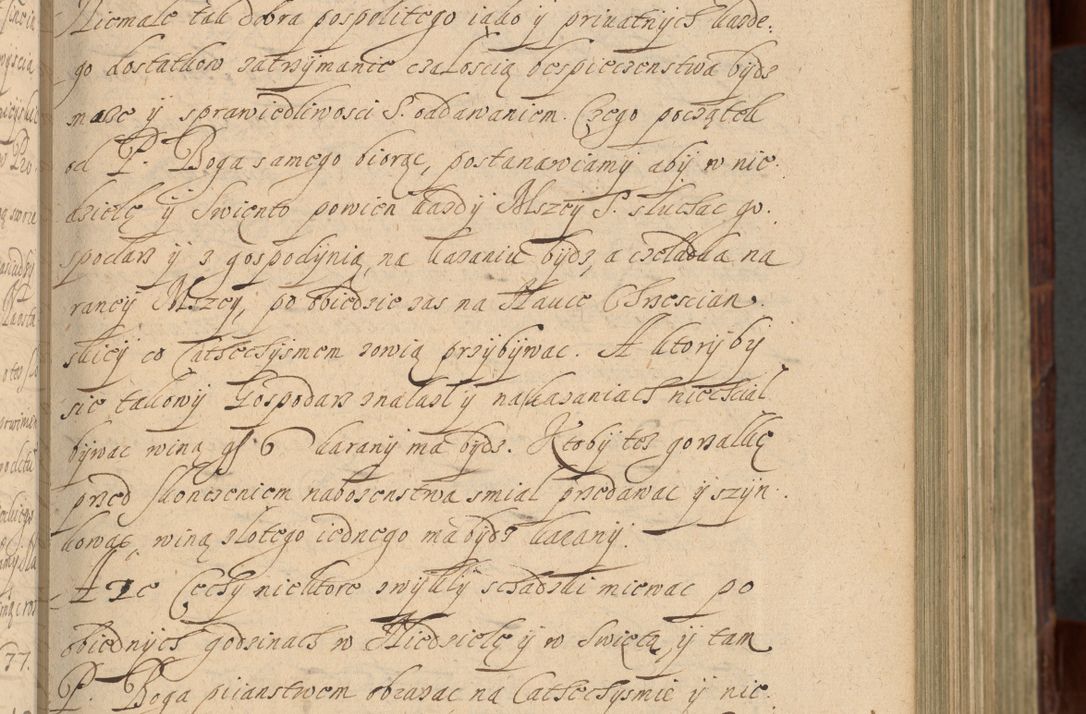 Niemałe tak dobra pospolitego iako ÿ priuatnÿch każde.
go dostatkow zatrzÿmanie całoscią bespieczenstwa bÿdz
może ÿ sprawiedliwosci S. oddawaniem. Czego początek
od P. Boga samego biorąc, postanawiamÿ abÿ w nie.
dzielę ÿ Swięnto powien każdÿ Mszeÿ S. słuchac go.
spodarz ÿ z gospodÿnią, na kazaniu bÿdz, a czeladka na
raneÿ Mszeÿ, po obiedzie zas na Nauce Chrzescian.
skieÿ co Catechÿsmem zowią przÿbÿwac. A ktorÿ bÿ
się takowÿ Gospodarz znalazł ÿ na kazaniach niechciał
bÿwac winą gr 6 karanÿ ma bÿdz. Ktobÿ tez gorzałkę
przed skonczeniem nabozenstwa smiał przedawac ÿ szÿn.
kowac, winą złotego iednego ma bÿdz karanÿ.
A ze Cechÿ niektore zwÿkłÿ schadzki miewac po
obiednÿch godzinach w Niedzielę ÿ w Swięta, ÿ tam
P. Boga piianstwem obrazac na Catechÿsmie ÿ nie.